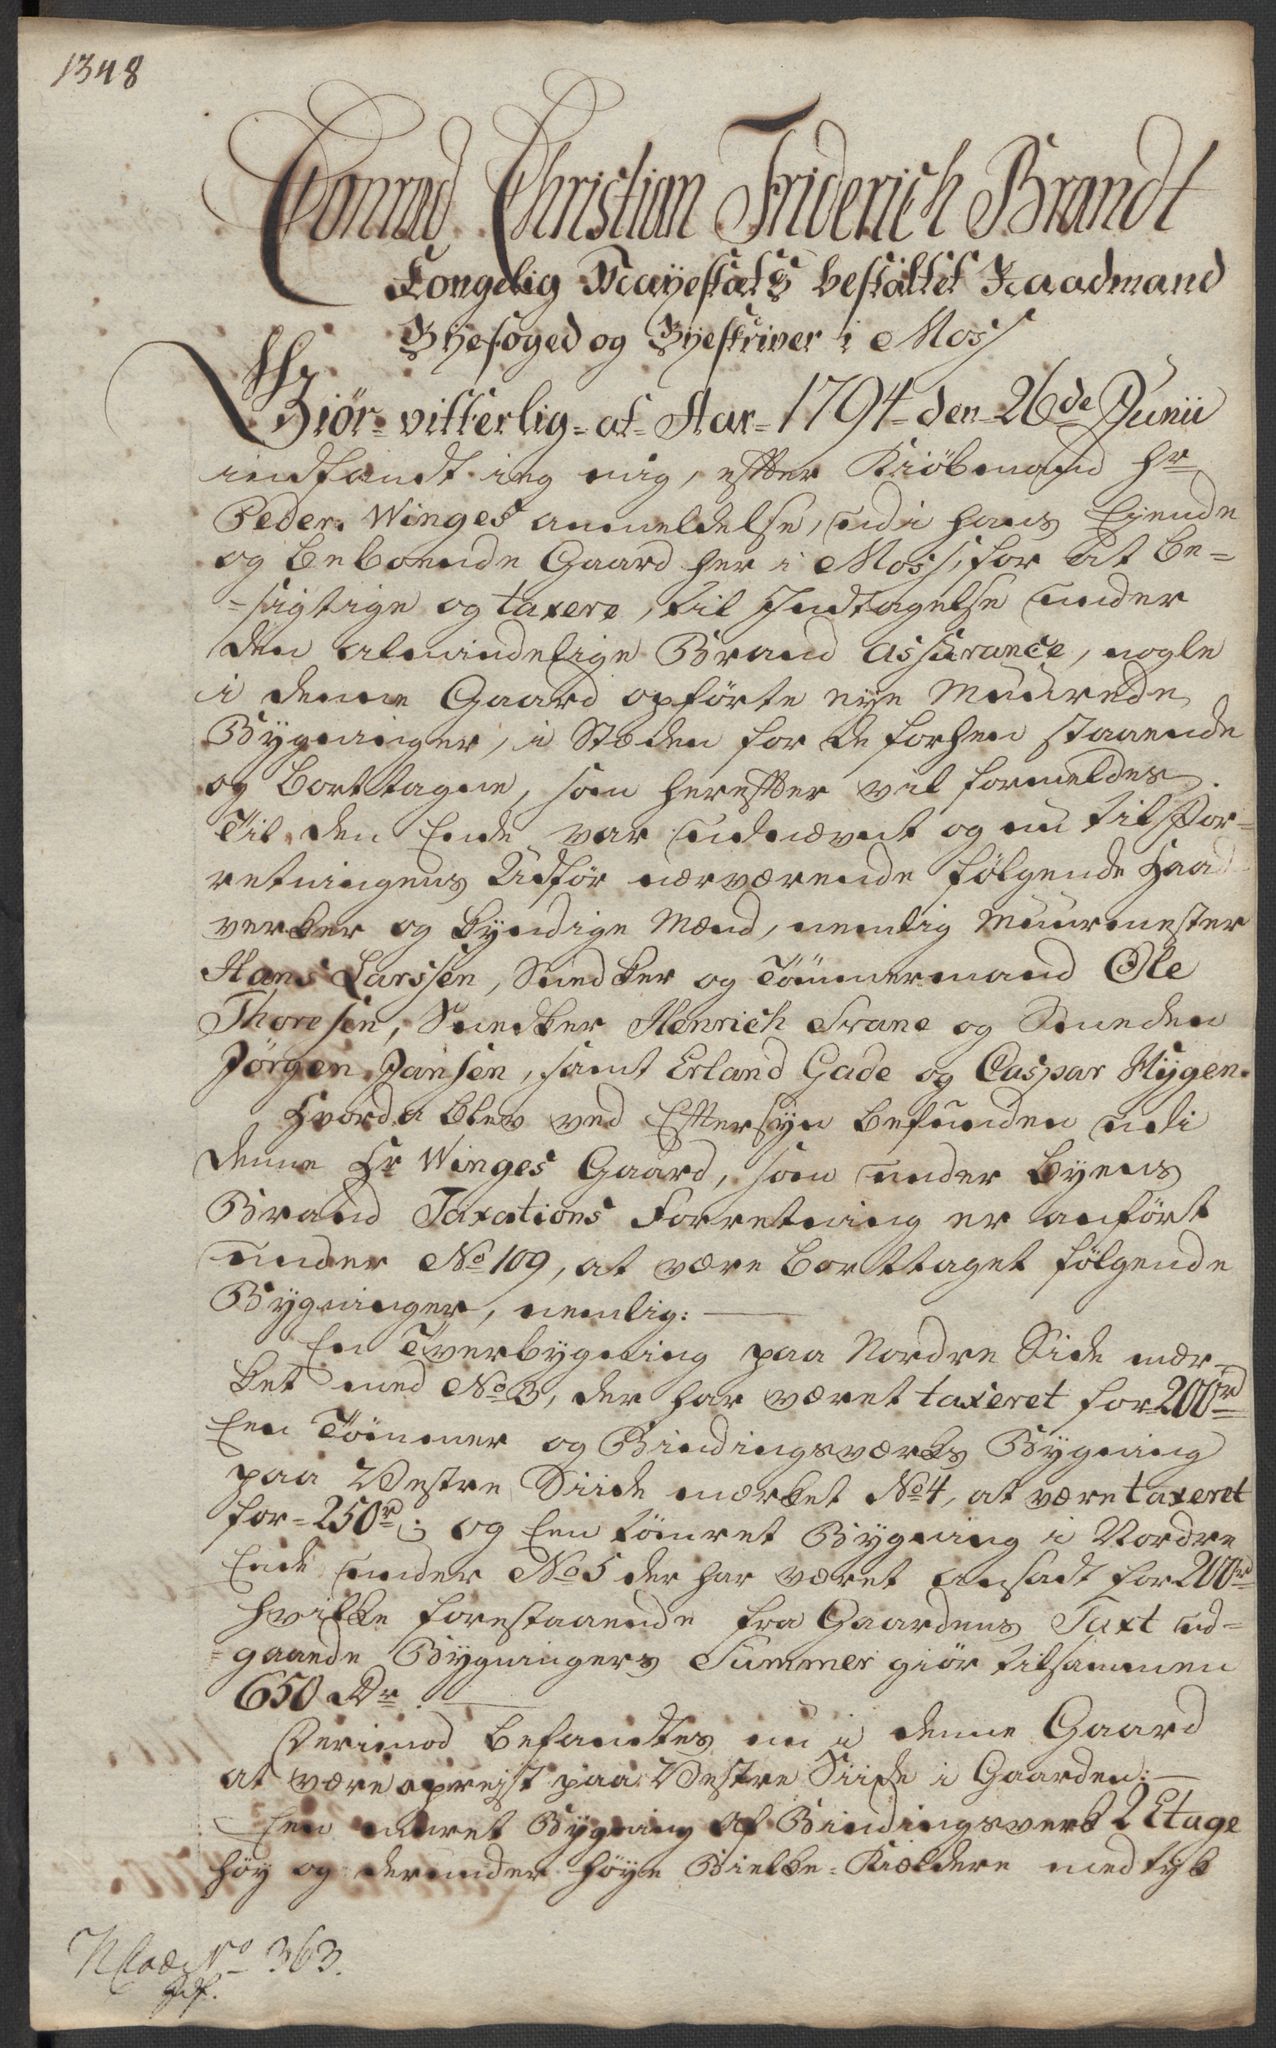 1348
Conrad Christian Friderich Brandt
Kongelig Mayestæts bestaltet Raadmand
Byefoged og Byeskriver i Moss
Giör vitterlig at Aar 1794 den 26de Junii
indfandt ieg mig, efter Kiöbmand Hr
Peder Winges anmeldelse, udi hans Eiende
og beboende Gaard her i Moss, for at be-
-sigtige og taxere, til Indtagelse under
den almindelige Brand assurance, nogle
i denne Gaard opförte nye Muurede
Bygninger, i Stæden for de forhen staaende
og borttagne, som herefter vil formeldes.
Til den Ende var udnævnt og nu til For-
retningens Udför nærværende fölgende Haand
verker og kyndige Mænd, nemlig Muurmester
Hans Larssen, Snedker og Tömmermand Ole
Thoresen, Snedker Henrich Trane og Smeden
Jörgen Jansen, samt Erland Gade og Caspar Hygen.
Hvorda blev ved Eftersyn befunden udi
denne Hr Winges Gaard, som under Byens
Brand Taxations Forretning er anfört
under No 109, at være borttaget fölgende
Bygninger, nemlig:
En Tverbygning paa Nordre Side mær-
ket med No 3, der har været taxeret for 200 rd
Een Tömmer og Bindingsværks Bygning
paa Vestre Siide mærket No 4, at være taxeret
for 250 rd; og Een tömret Bygning i Nordre
Ende under No 5 der har været ansadt for 200 rd
hvilke forestaaende fra Gaardens Taxt ud-
-gaaende Bygningers Summer giör tilsammen
650 Dr.
Derimod befandtes nu i denne Gaard
at være opreist paa Vestre Siide i Gaarden:
Een muret Bygning af Bindingsverk 2 Etage
höy og derunder höye Bielke-Kieldere med tyk
No 363.